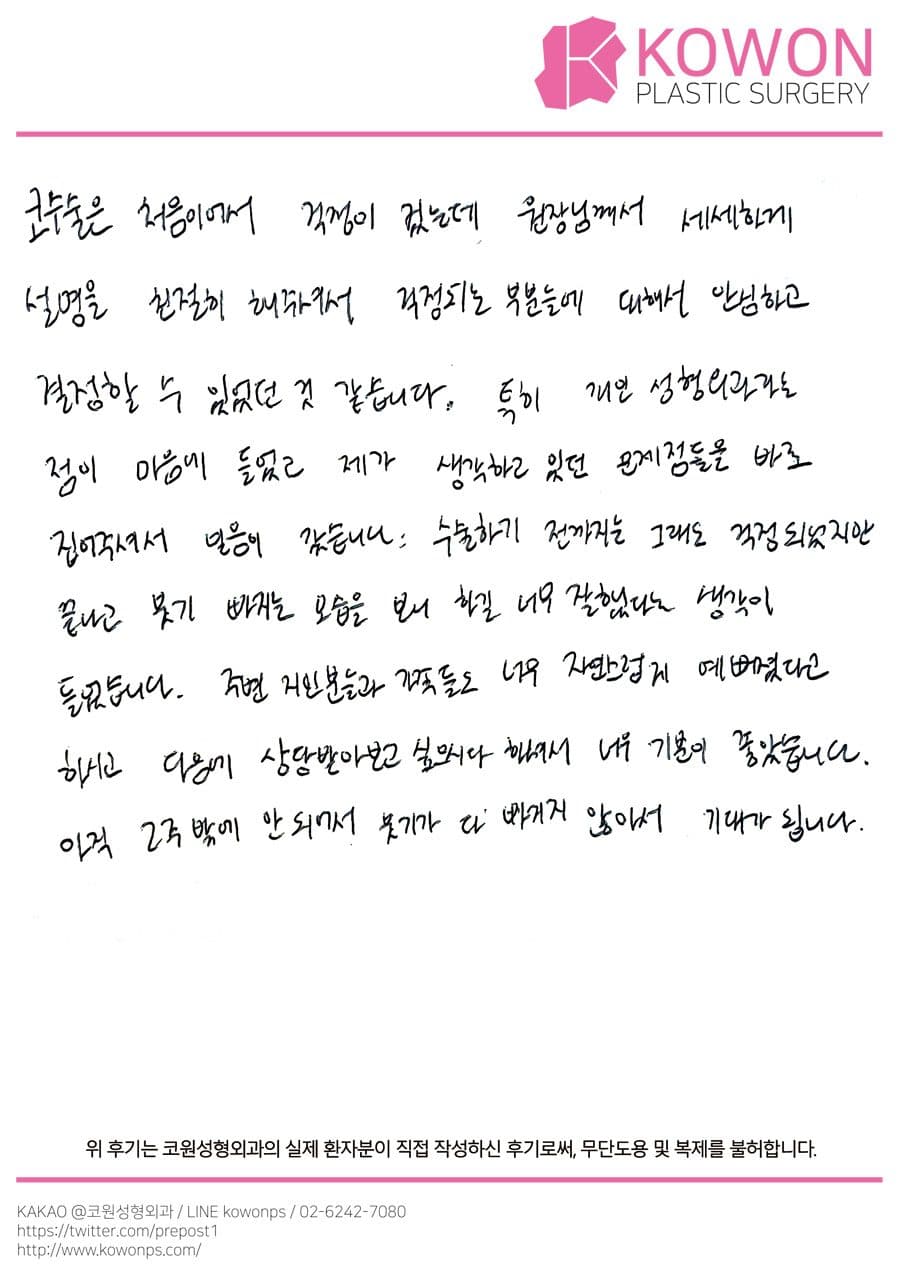 KOWON
PLASTIC SURGERY
코수술은 처음이어서 걱정이 컸는데 원장님께서 세세하게
설명을 친절히 해주셔서 걱정되는 부분들에 대해서 안심하고
결정할 수 있었던 것 같습니다. 특히 개인 성형외과라는
점이 마음에 들었고 제가 생각하고 있던 문제점들을 바로
집어주셔서 믿음이 갔습니다. 수술하기 전까지는 그래도 걱정되었지만
끝나고 붓기 빠지는 모습을 보니 하길 너무 잘했다는 생각이
들었습니다. 주변 지인분들과 가족들도 너무 자연스럽게 예뻐졌다고
하시고 다음에 상담받아보고 싶으시다 하셔서 너무 기분이 좋았습니다.
아직 2주 밖에 안 되어서 붓기가 다 빠지지 않아서 기대가 됩니다.
위 후기는 코원성형외과의 실제 환자분이 직접 작성하신 후기로써, 무단도용 및 복제를 불허합니다.
KAKAO @코원성형외과 / LINE kowonps / 02-6242-7080
https://twitter.com/prepost1
http://www.kowonps.com/